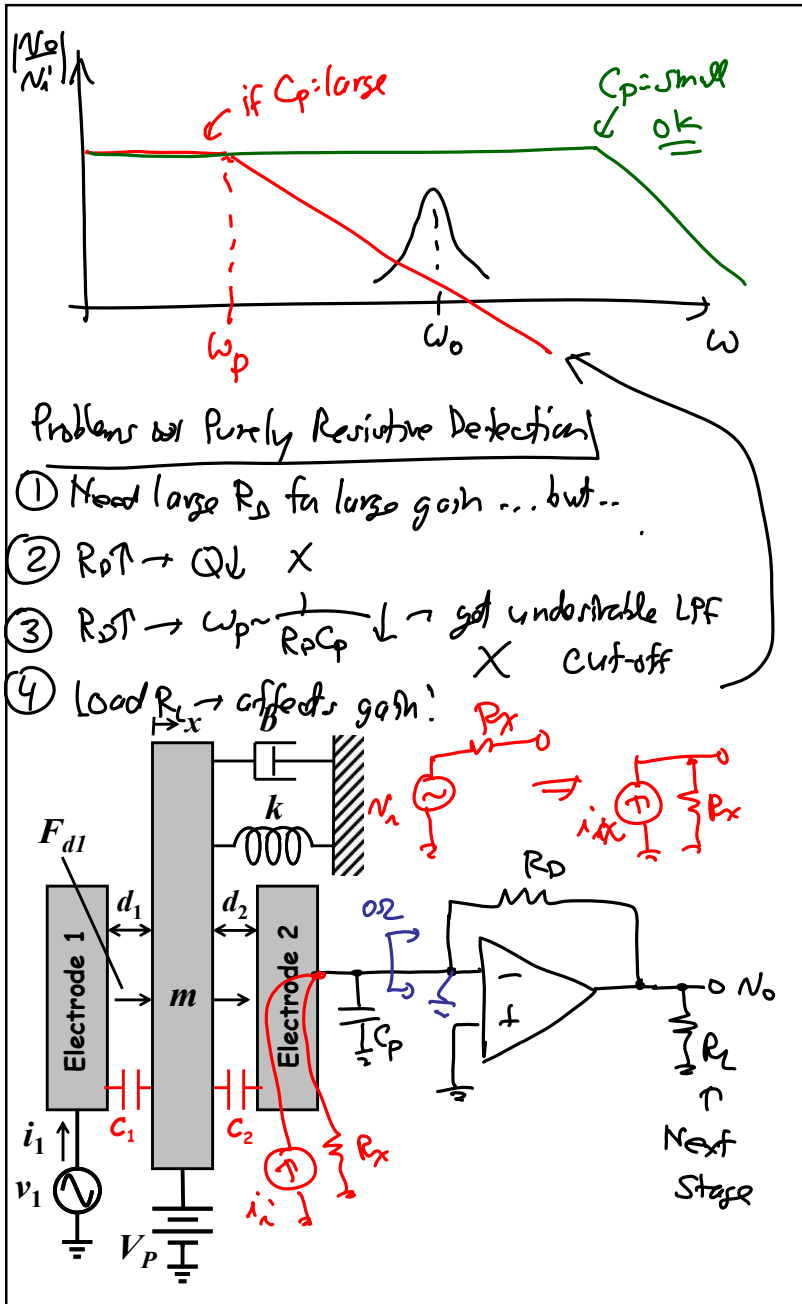 |No/Ni|
if Cp = large
Cp = small
ok
ωp
ωo
ω
Problems w/ Purely Resistive Detection
① Need large RD for large gain ... but..
② RD↑ → Q↓ X
③ RD↑ → ωp ~ 1/RDCp ↓ → get undesirable LPF
X cut-off
④ Load RL → affects gain!
x
b
k
Fd1
d1
d2
Electrode 1
m
Electrode 2
C1
C2
i1
v1
VP
Rx
Ni
⇒
iix
Rx
0Ω
RD
−
+
Cp
No
RL
↑
Next
Stage
ii
Rx